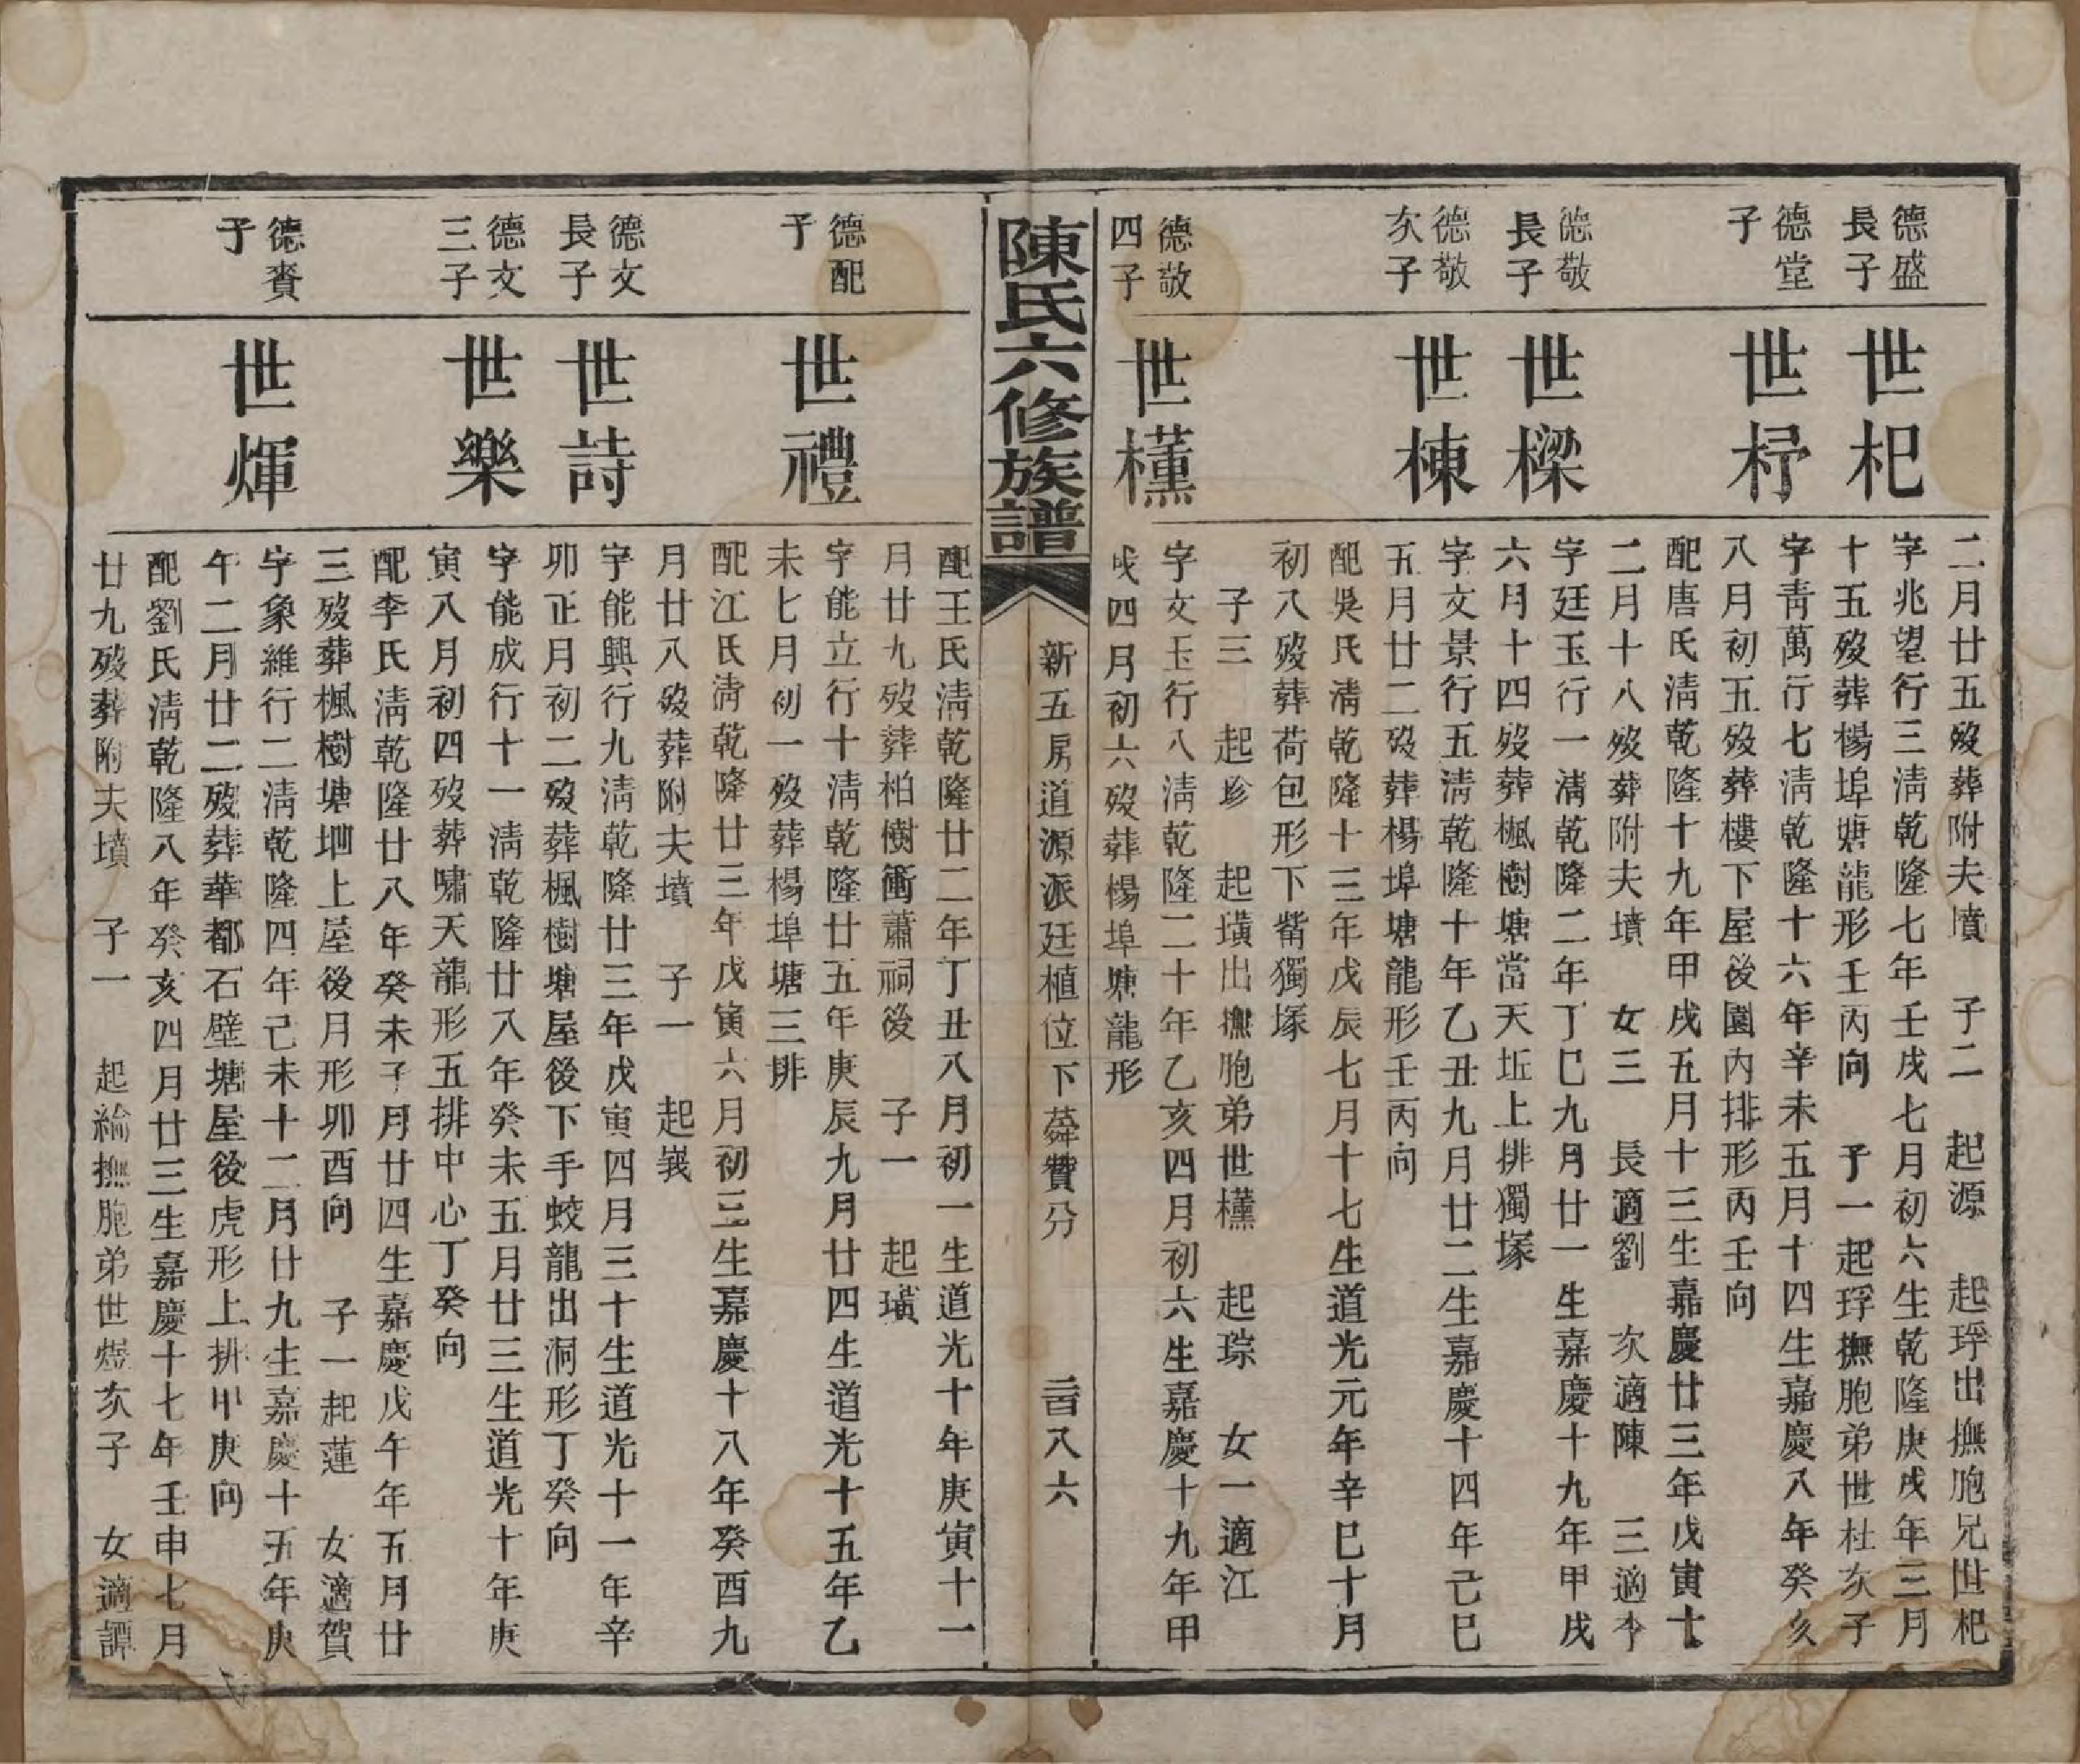 德盛
長子
世杞
二月廿五歿葬附夫墳　子二　起源　起琈出撫胞兄世杞
字兆望行三淸乾隆七年壬戌七月初六生乾隆庚戌年三月
十五歿葬楊埠塘龍形壬丙向　子一起琈撫胞弟世杜次子
德堂
子
世杼
字靑萬行七淸乾隆十六年辛未五月十四生嘉慶八年癸亥
八月初五歿葬樓下屋後園內排形丙壬向
配唐氏淸乾隆十九年甲戌五月十三生嘉慶廿三年戊寅十
二月十八歿葬附夫墳　女三　長適劉　次適陳　三適李
德敬
長子
世樑
字廷玉行一淸乾隆二年丁巳九月廿一生嘉慶十九年甲戌
六月十四歿葬楓樹塘當天坵上排獨塚
德敬
次子
世棟
字文景行五淸乾隆十年乙丑九月廿二生嘉慶十四年己巳
五月廿二歿葬楊埠塘龍形壬丙向
配吳氏淸乾隆十三年戊辰七月十七生道光元年辛巳十月
初八歿葬荷包形下觜獨塚
子三　起珍　起璜出撫胞弟世櫄　起琮　女一適江
德敬
四子
世櫄
字文玉行八淸乾隆二十年乙亥四月初六生嘉慶十九年甲
戌四月初六歿葬楊埠塘龍形
陳氏六修族譜
新五房道源派廷植位下蕣贊分
二百八六
配王氏淸乾隆廿二年丁丑八月初一生道光十年庚寅十一
月廿九歿葬柏樹衝蕭祠後　子一　起璜
德配
子
世禮
字能立行十淸乾隆廿五年庚辰九月廿四生道光十五年乙
未七月初一歿葬楊埠塘三排
配江氏淸乾隆廿三年戊寅六月初三生嘉慶十八年癸酉九
月廿八歿葬附夫墳　子一　起峩
德文
長子
世詩
字能興行九淸乾隆廿三年戊寅四月三十生道光十一年辛
卯正月初二歿葬楓樹塘屋後下手蛟龍出洞形丁癸向
德文
三子
世樂
字能成行十一淸乾隆廿八年癸未五月廿三生道光十年庚
寅八月初四歿葬嘯天龍形五排中心丁癸向
配李氏淸乾隆廿八年癸未子月廿四生嘉慶戊午年五月廿
三歿葬楓樹塘坤上屋後月形卯酉向　子一起蓮　女適賀
德賚
子
世煇
字象維行二淸乾隆四年己未十二月廿九生嘉慶十五年庚
午二月廿二歿葬華都石壁塘屋後虎形上排甲庚向
配劉氏淸乾隆八年癸亥四月廿三生嘉慶十七年壬申七月
廿九歿葬附夫墳　子一　起綸撫胞弟世煜次子　女適譚